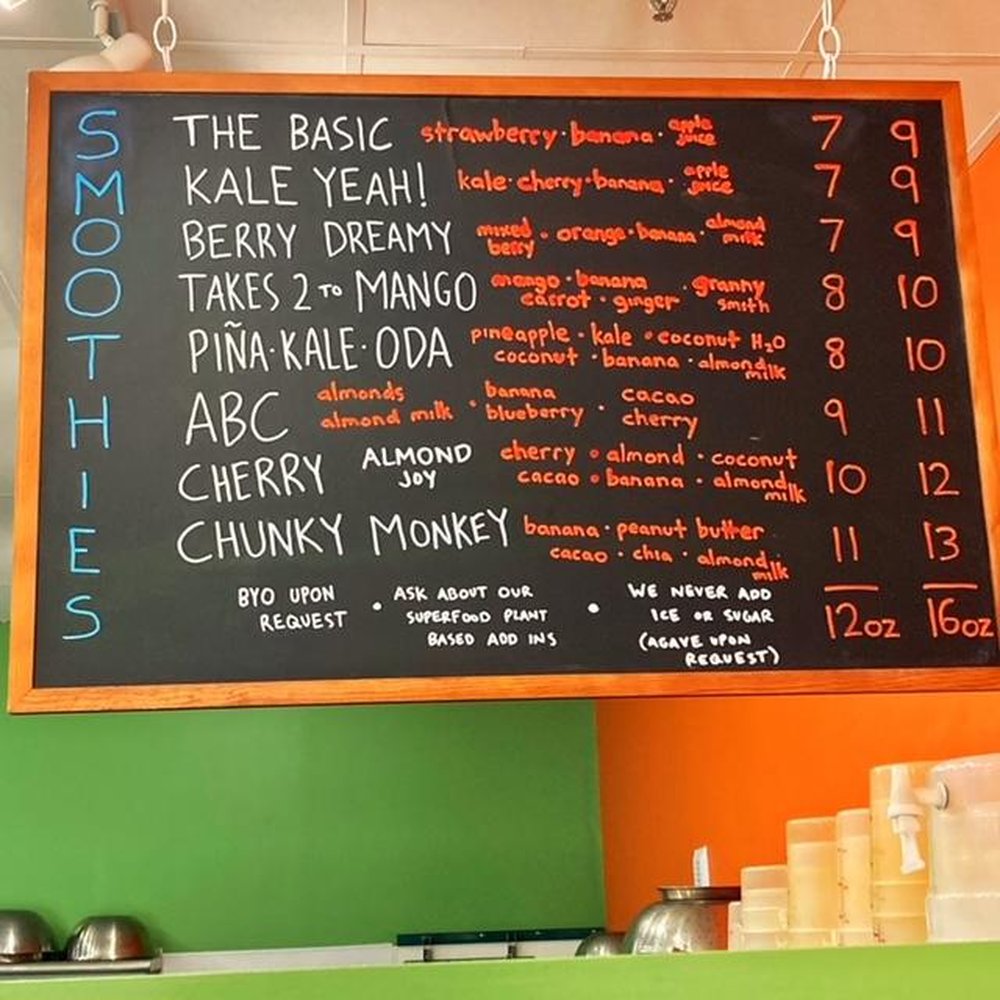 SMOOTHIES
THE BASIC strawberry · banana · apple juice 7 9
KALE YEAH! kale · cherry · banana · apple juice 7 9
BERRY DREAMY mixed berry · orange · banana · almond milk 7 9
TAKES 2 TO MANGO mango · banana · granny smith carrot · ginger 8 10
PIÑA·KALE·ODA pineapple · kale · coconut H₂O coconut · banana · almond milk 8 10
ABC almonds almond milk · banana blueberry · cacao cherry 9 11
CHERRY ALMOND JOY cherry · almond · coconut cacao · banana · almond milk 10 12
CHUNKY MONKEY banana · peanut butter cacao · chia · almond milk 11 13
12oz 16oz
BYO UPON REQUEST · ASK ABOUT OUR SUPERFOOD PLANT BASED ADD INS · WE NEVER ADD ICE OR SUGAR (AGAVE UPON REQUEST)